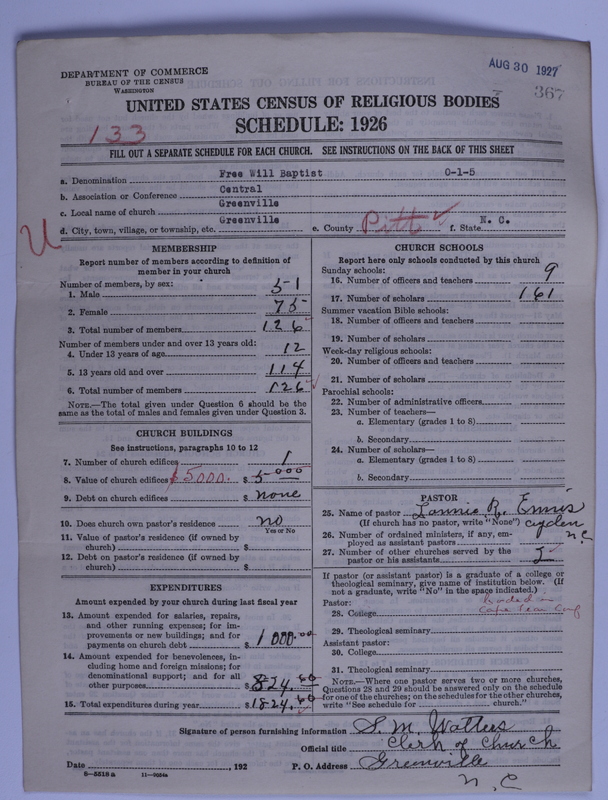 DEPARTMENT OF COMMERCE
BUREAU OF THE CENSUS
WASHINGTON
AUG 30 1927
367
UNITED STATES CENSUS OF RELIGIOUS BODIES
SCHEDULE: 1926
133
FILL OUT A SEPARATE SCHEDULE FOR EACH CHURCH. SEE INSTRUCTIONS ON THE BACK OF THIS SHEET
a. Denomination Free Will Baptist 0-1-5
b. Association or Conference Central
c. Local name of church Greenville
d. City, town, village, or township, etc. Greenville e. County Pitt f. State N. C.
U
MEMBERSHIP
Report number of members according to definition of
member in your church
Number of members, by sex:
1. Male 51
2. Female 75
3. Total number of members 126
Number of members under and over 13 years old:
4. Under 13 years of age 12
5. 13 years old and over 114
6. Total number of members 126
NOTE.—The total given under Question 6 should be the
same as the total of males and females given under Question 3.
CHURCH BUILDINGS
See instructions, paragraphs 10 to 12
7. Number of church edifices 1
8. Value of church edifices $5000. $ 5000
9. Debt on church edifices $ none
10. Does church own pastor's residence no
Yes or No
11. Value of pastor's residence (if owned by
church) $
12. Debt on pastor's residence (if owned by
church) $
EXPENDITURES
Amount expended by your church during last fiscal year
13. Amount expended for salaries, repairs,
and other running expenses; for im-
provements or new buildings; and for
payments on church debt $ 1000.00
14. Amount expended for benevolences, in-
cluding home and foreign missions; for
denominational support; and for all
other purposes $ 824.60
15. Total expenditures during year $ 1824.60
CHURCH SCHOOLS
Report here only schools conducted by this church
Sunday schools:
16. Number of officers and teachers 9
17. Number of scholars 161
Summer vacation Bible schools:
18. Number of officers and teachers
19. Number of scholars
Week-day religious schools:
20. Number of officers and teachers
21. Number of scholars
Parochial schools:
22. Number of administrative officers
23. Number of teachers—
a. Elementary (grades 1 to 8)
b. Secondary
24. Number of scholars—
a. Elementary (grades 1 to 8)
b. Secondary
PASTOR
25. Name of pastor Lannie R. Ennis
(If church has no pastor, write "None")
N C
26. Number of ordained ministers, if any, em-
ployed as assistant pastors
27. Number of other churches served by the
pastor or his assistants
If pastor (or assistant pastor) is a graduate of a college or
theological seminary, give name of institution below. (If
not a graduate, write "No" in the space indicated.)
Pastor:
28. College
Cape Fear Conf
29. Theological seminary
Assistant pastor:
30. College
31. Theological seminary
NOTE.—Where one pastor serves two or more churches,
Questions 28 and 29 should be answered only on the schedule
for one of the churches; on the schedules for the other churches,
write "See schedule for church."
Signature of person furnishing information S. M. Watters
Official title Clerk of Church
Date , 192 P. O. Address Greenville
N. C
8—5518a 11—9554a